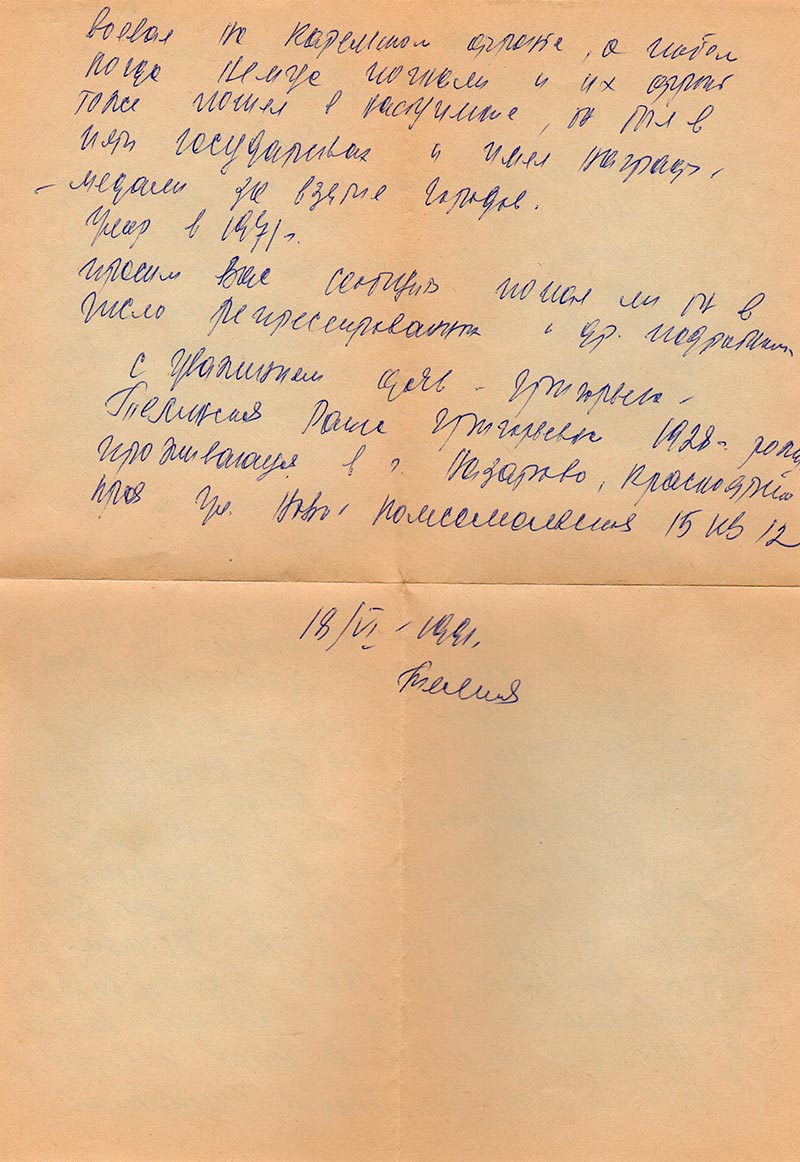 воевал на Карельском фронте, а потом
когда немца погнали и их фронт
тоже пошел в наступление, он был в
пяти государствах и имел награды,
- медали за взятие городов.
Умер в 1971 г.
просим Вас сообщить попал ли он в
число репрессированных и др. подробности
с уважением дочь - Григорьева -
Раиса Григорьевна 1928 г. рожд
проживающая в г. Назарово, Красноярский
края ул. Ново Комсомольская 15 кв 12
18/VI - 1991.